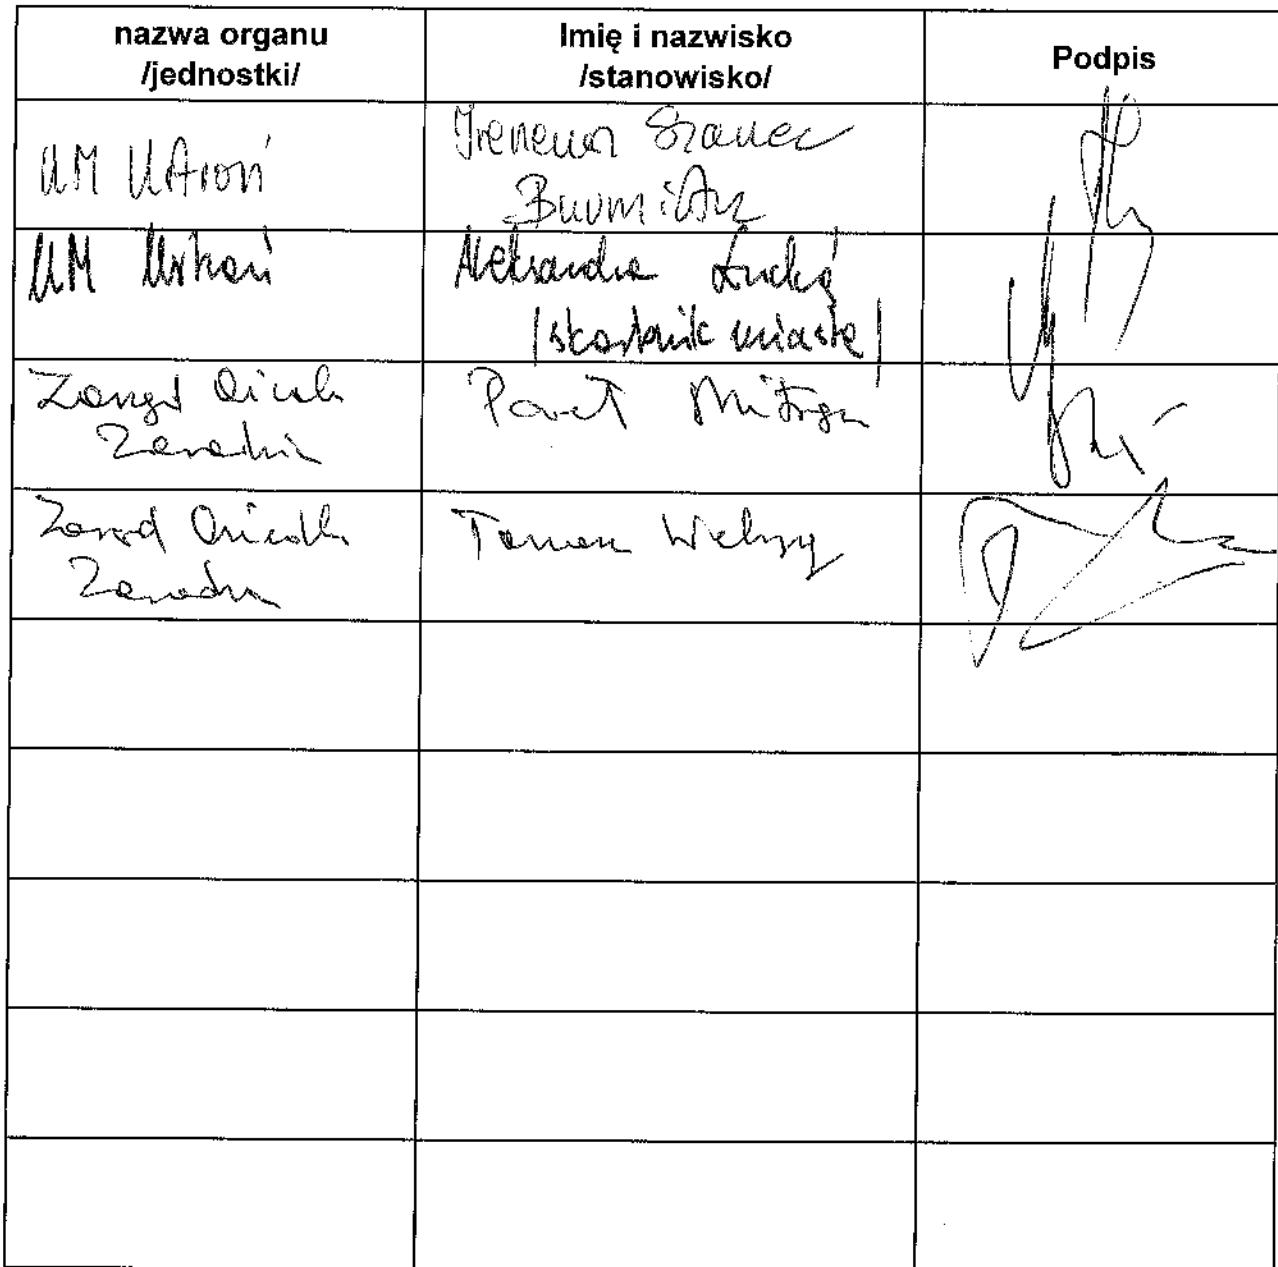 nazwa organu
/jednostki/
Imię i nazwisko
/stanowisko/
Podpis
UM Ustroń
Ireneusz Szarzec
Burmistrz
UM Ustroń
Aleksandra Łucka
/skarbnik miasta/
Zarząd Osiedla
Zawodzie
Paweł
Zarząd Osiedla
Zawodzie
Tomasz